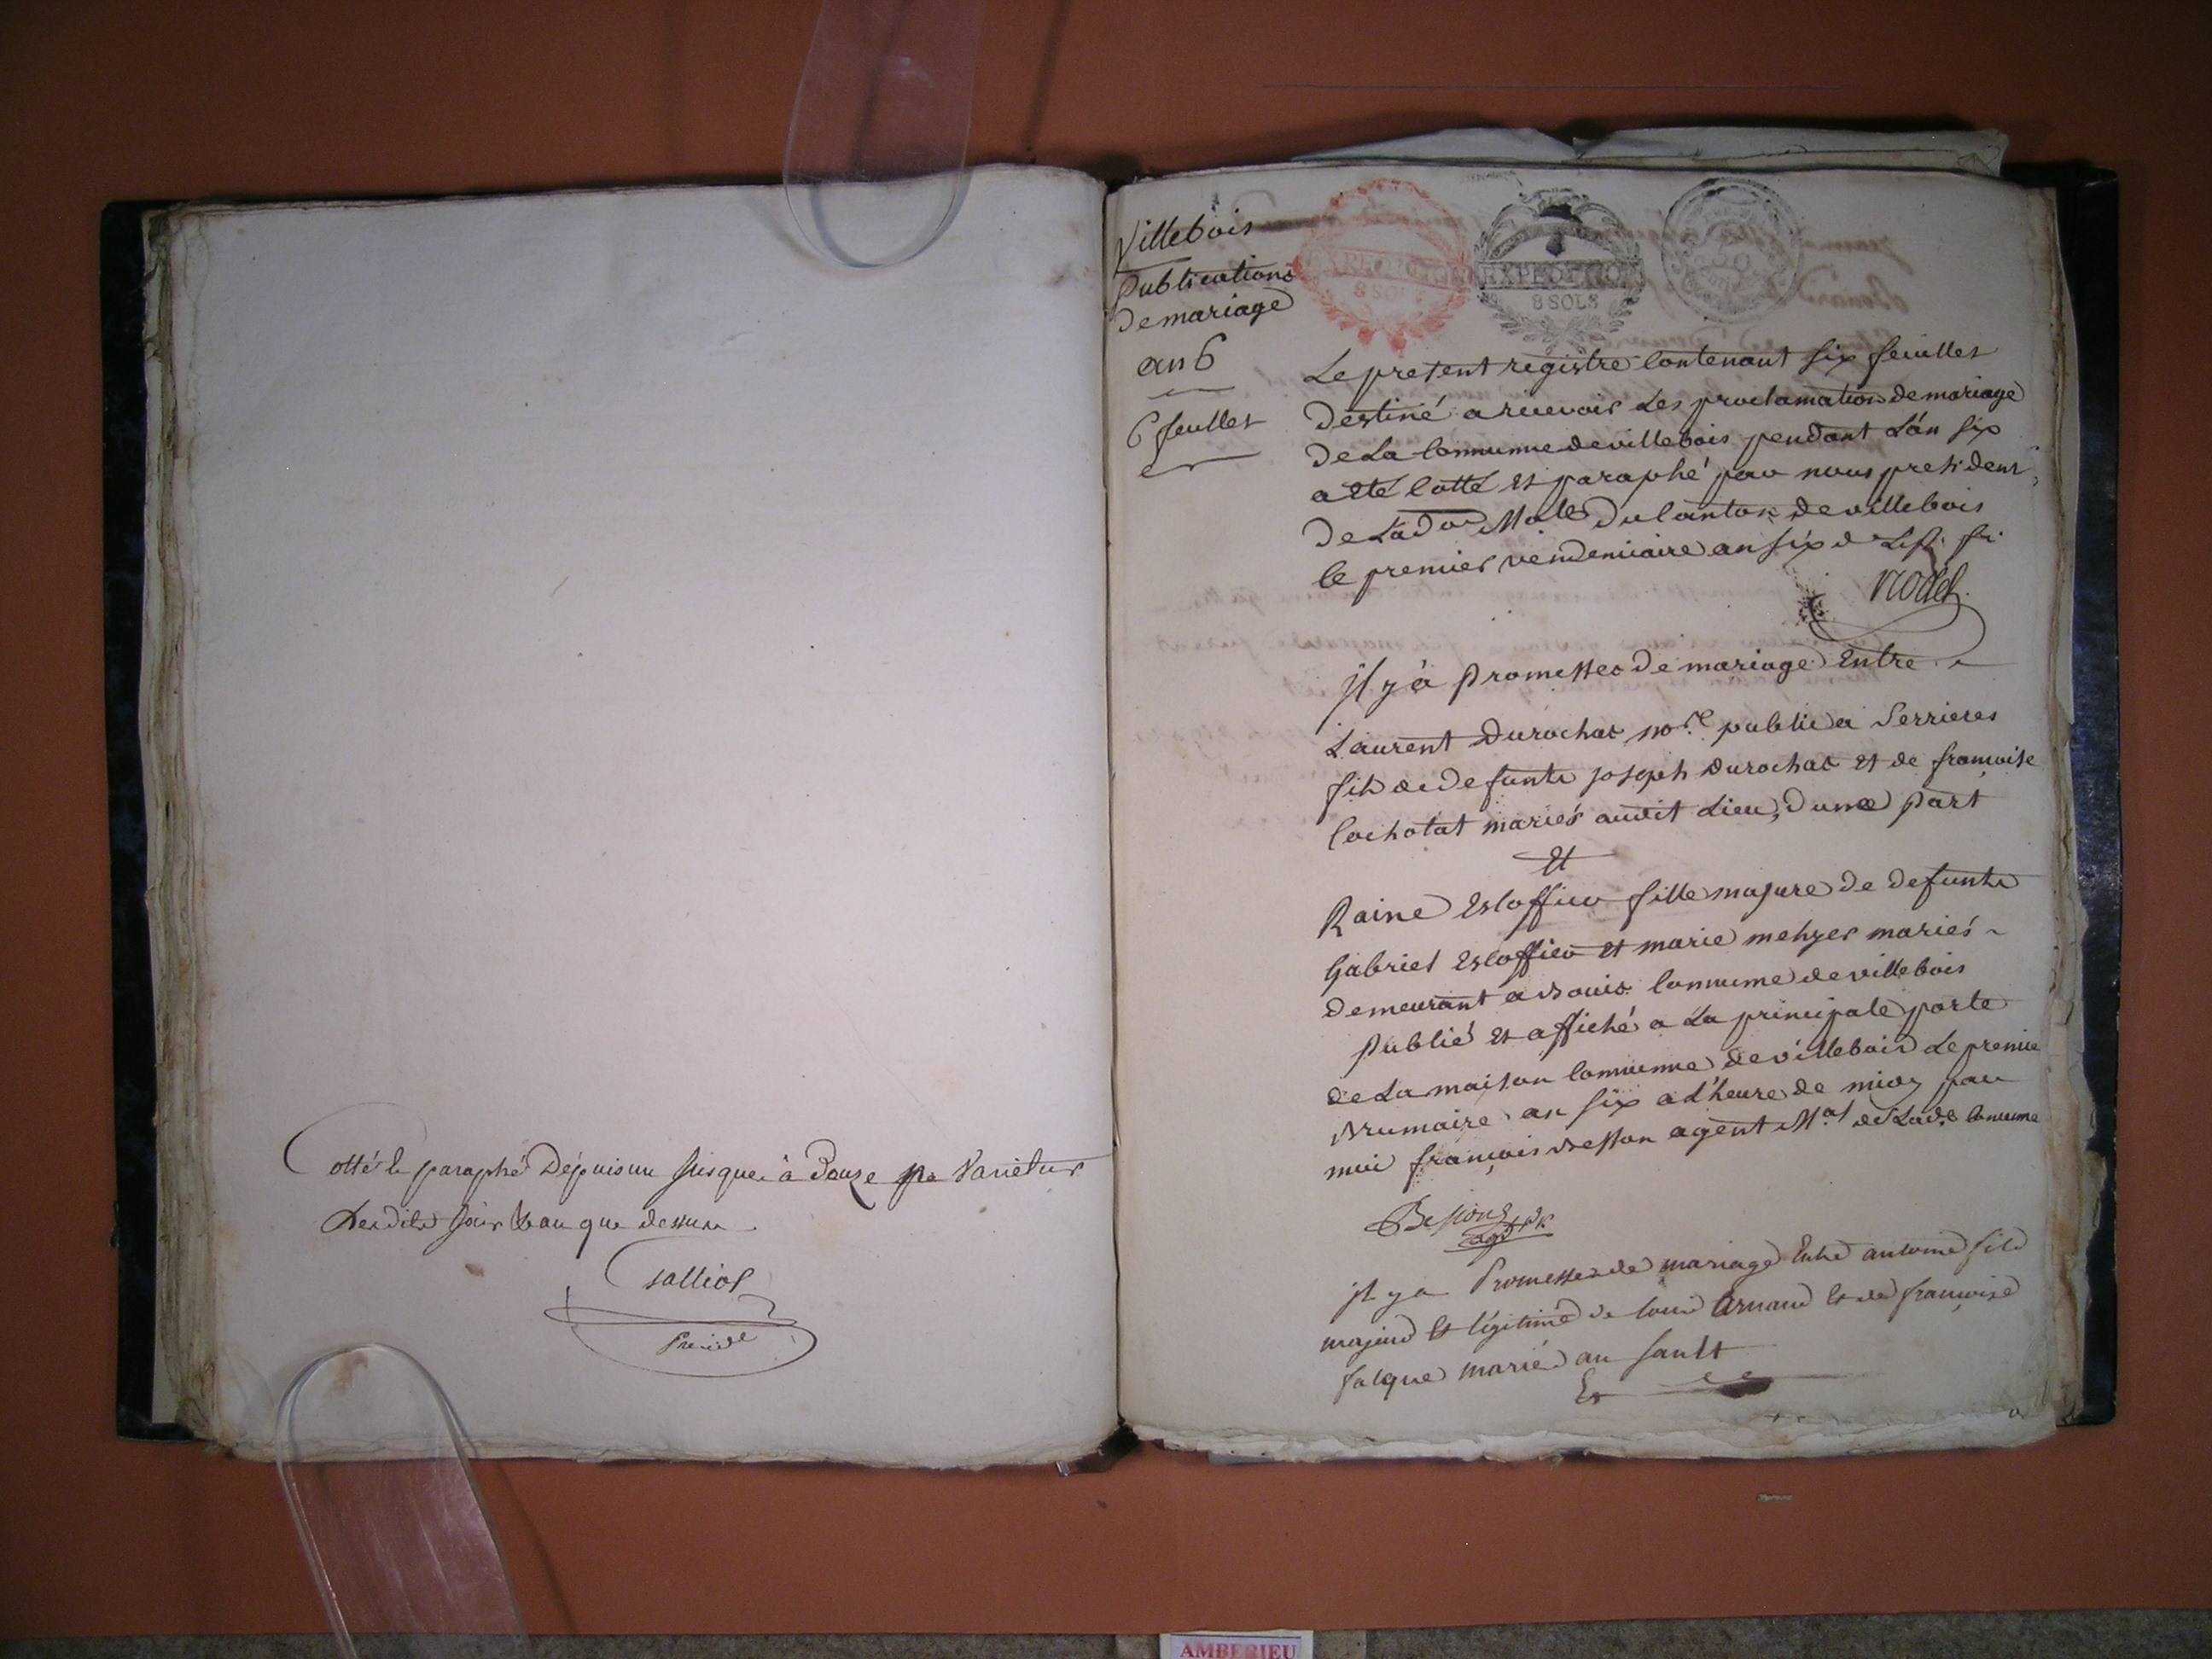 Cotté & paraphé Dépuis un Jusques à Douze ne Varietur
Lesdits jour & an que dessus
Presidt
Villebois
Publications
de mariage
an 6
6 feuilles
EXPEDITION
8 SOLS
EXPEDITION
8 SOLS
Le present registre contenant six feuilles
destiné a recevoir Les proclamations de mariage
de La Commune de villebois pendant L'an six
a eté Cotté et paraphé par nous president
de Lad.on M.ale du Canton de villebois
le premier vendemiaire an six d
Il y à Promesses de mariage Entre
Laurent Durochat no.re public a Serrieres
fils de defunts joseph Durochat et de françoise
Cochotat mariés audit Lieu, d'une Part
Et
Raine Escoffier fille majure de defunts
Gabriel Escoffier et marie mehyer mariés
demeurant a Bouis Commune de villebois
Publié et affiché a La principale porte
de La maison Commune de villebois Le premier
Brumaire an six a L'heure de midy par
moi françois Besson agent M.al de Lad.e Commune
Besson agt
il y a Promesses de mariage Entre antoine fils
majeur et légitime de Louis Arnaud et de françoise
falque mariés au Sault
Et
AMBERIEU